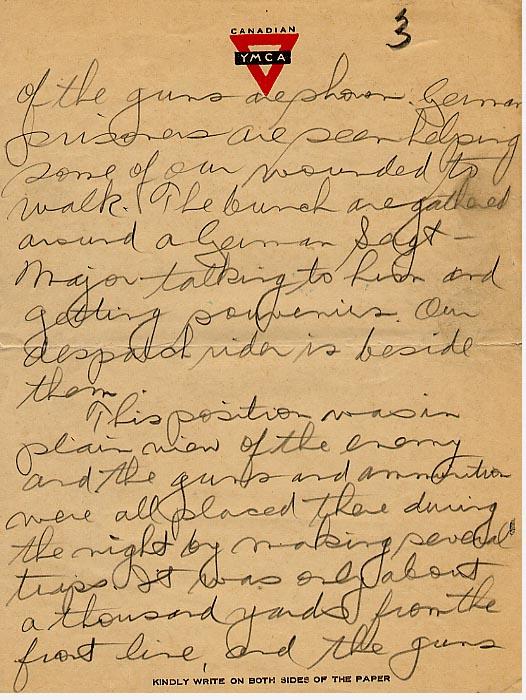 CANADIAN
YMCA
3
of the guns are shown. German
prisoners are seen helping
some of our wounded to
walk. The bunch are gathered
around a German Sagt-
Major talking to him and
getting souvenirs. Our
despatch rider is beside
them.
This position was in
plain view of the enemy
and the guns and ammunition
were all placed there during
the night by making several
trips. It was only about
a thousand yards from the
front line, and the guns
KINDLY WRITE ON BOTH SIDES OF THE PAPER